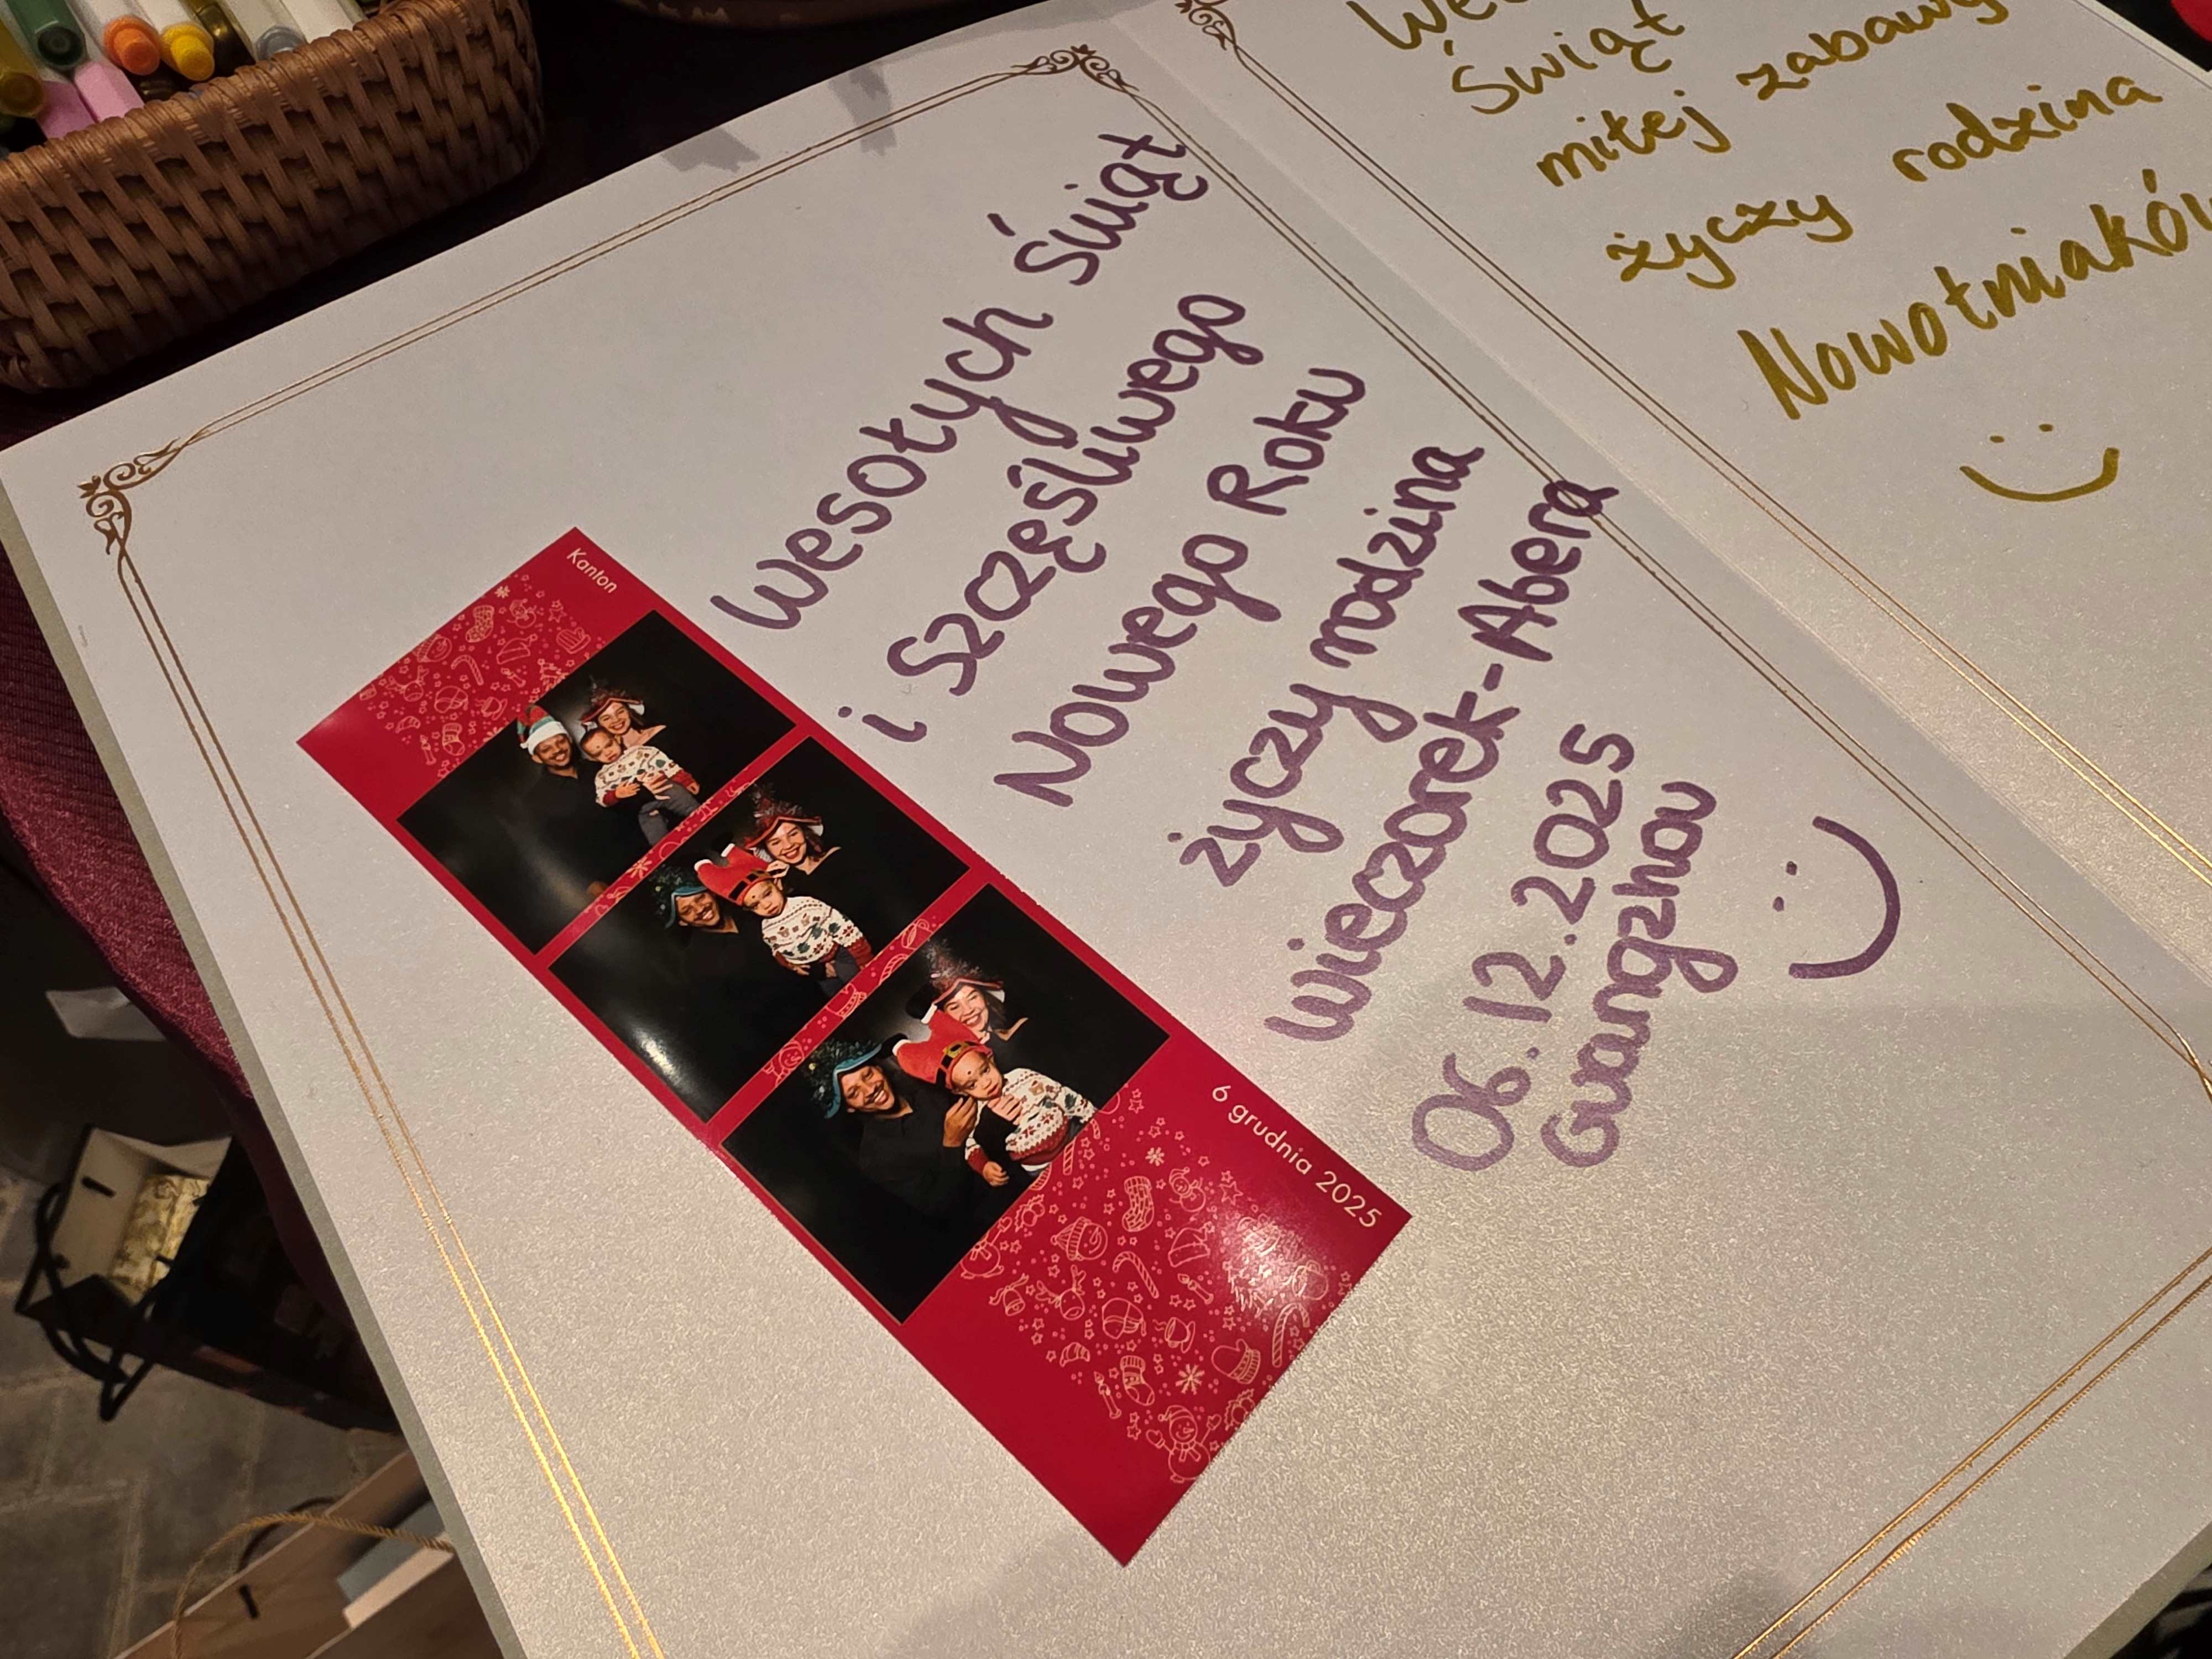 Kanton
6 grudnia 2025
Wesołych Świąt
i Szczęśliwego
Nowego Roku
życzy rodzina
Wieczorek-Abera
06.12.2025
Guangzhou
Świąt
miłej zabawy
życzy rodzina